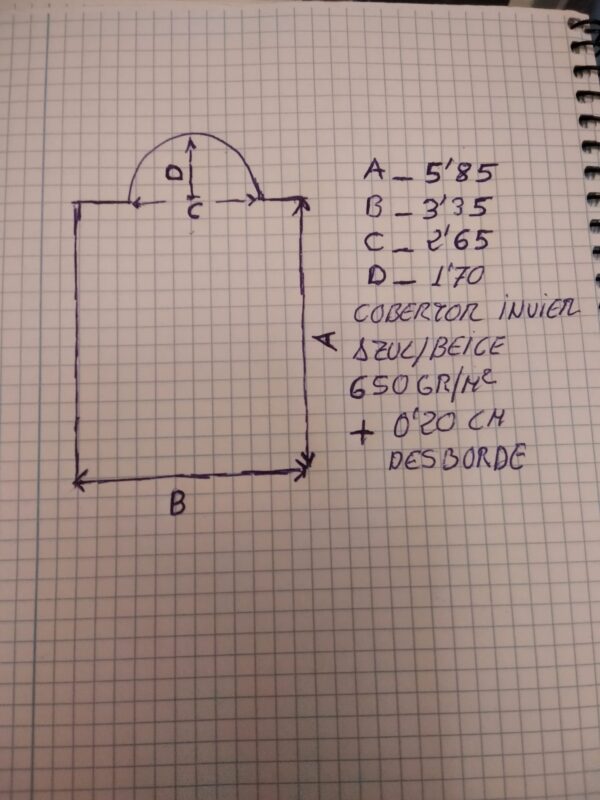 D
C
A
B
A - 5'85
B - 3'35
C - 2'65
D - 1'70
COBERTOR INVIER
AZUL/BEIGE
650 GR/M²
+ 0'20 CM
DESBORDE